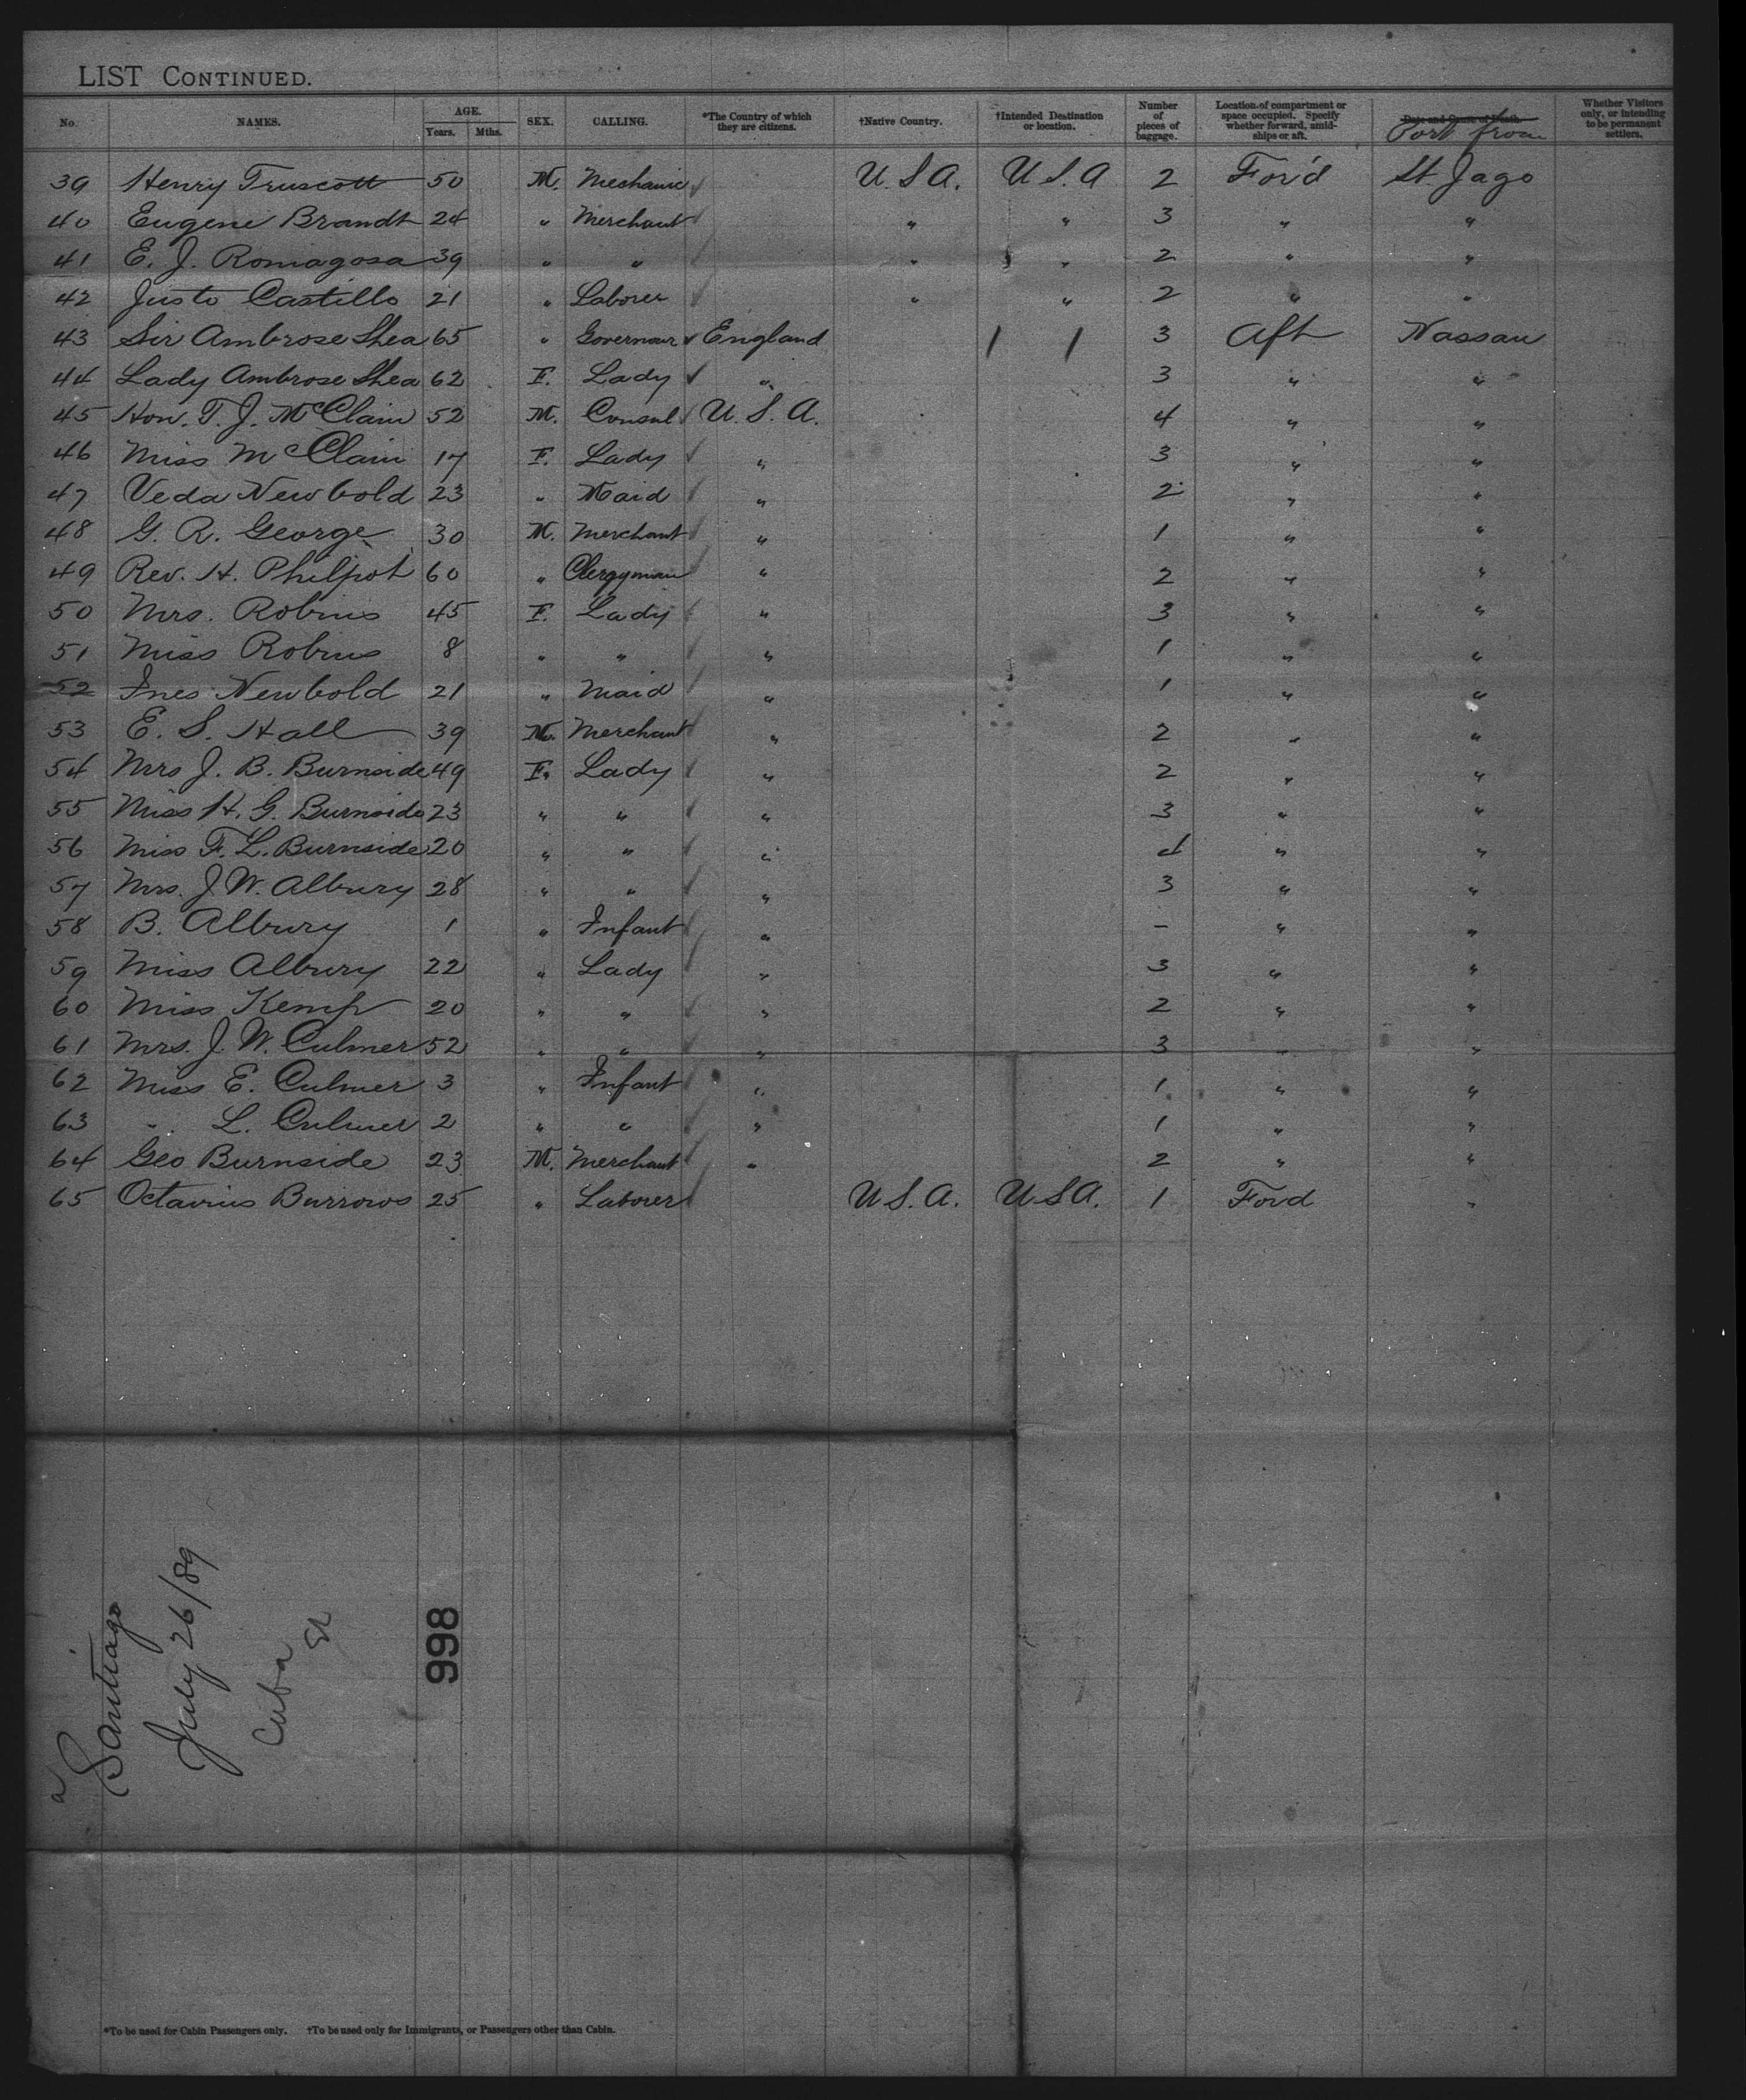 LIST CONTINUED.
No. NAMES. AGE. Years. Mths. SEX. CALLING. *The Country of which they are citizens. †Native Country. †Intended Destination or location. Number of pieces of baggage. Location of compartment or space occupied. Specify whether forward, amidships or aft. Date and Cause of Death. Port from Whether Visitors only, or intending to be permanent settlers.
39 Henry Truscott 50 M. Mechanic U.S.A. U.S.A 2 For'd St Jago
40 Eugene Brandt 24 " Merchant " " 3 " "
41 E. J. Romagosa 39 " " " " 2 " "
42 Justo Castillo 21 " Laborer " " 2 " "
43 Sir Ambrose Shea 65 " Governour England 3 Aft Nassau
44 Lady Ambrose Shea 62 F. Lady " 3 " "
45 Hon. T. J. McClain 52 M. Consul U.S.A. 4 " "
46 Miss McClain 17 F. Lady " 3 " "
47 Veda Newbold 23 " Maid " 2 " "
48 G. R. George 30 M. Merchant " 1 " "
49 Rev. H. Philpot 60 " Clergyman " 2 " "
50 Mrs. Robins 45 F. Lady " 3 " "
51 Miss Robins 8 " " " 1 " "
52 Ines Newbold 21 " Maid " 1 " "
53 E. S. Hall 39 M. Merchant " 2 " "
54 Mrs J. B. Burnside 49 F. Lady " 2 " "
55 Miss H. G. Burnside 23 " " " 3 " "
56 Miss F. L. Burnside 20 " " " 4 " "
57 Mrs. J. W. Albury 28 " " " 3 " "
58 B. Albury 1 " Infant " - " "
59 Miss Albury 22 " Lady " 3 " "
60 Miss Kemp 20 " " " 2 " "
61 Mrs. J. W. Culmer 52 " " " 3 " "
62 Miss E. Culmer 3 " Infant " 1 " "
63 " L. Culmer 2 " " " 1 " "
64 Geo Burnside 23 M. Merchant " 2 " "
65 Octavius Burrows 25 " Laborer U.S.A. U.S.A. 1 For'd "
Santiago
July 26/89
Cuba
998
*To be used for Cabin Passengers only. †To be used only for Immigrants, or Passengers other than Cabin.